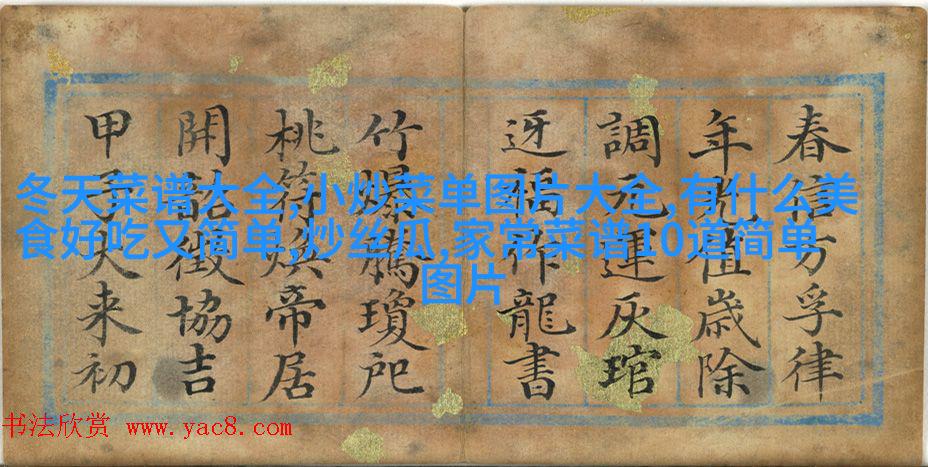 春信方孚律
年光值歲除
調元運灰琯
迓福作龍書
竹爆騰瓊戺
桃符煥帝居
開韶徵協吉
甲子大来初
冬天菜谱大全,小炒菜单图片大全,有什么美
食好吃又简单,炒丝瓜,家常菜谱10道简单
图片
书法欣赏 www.yac8.com